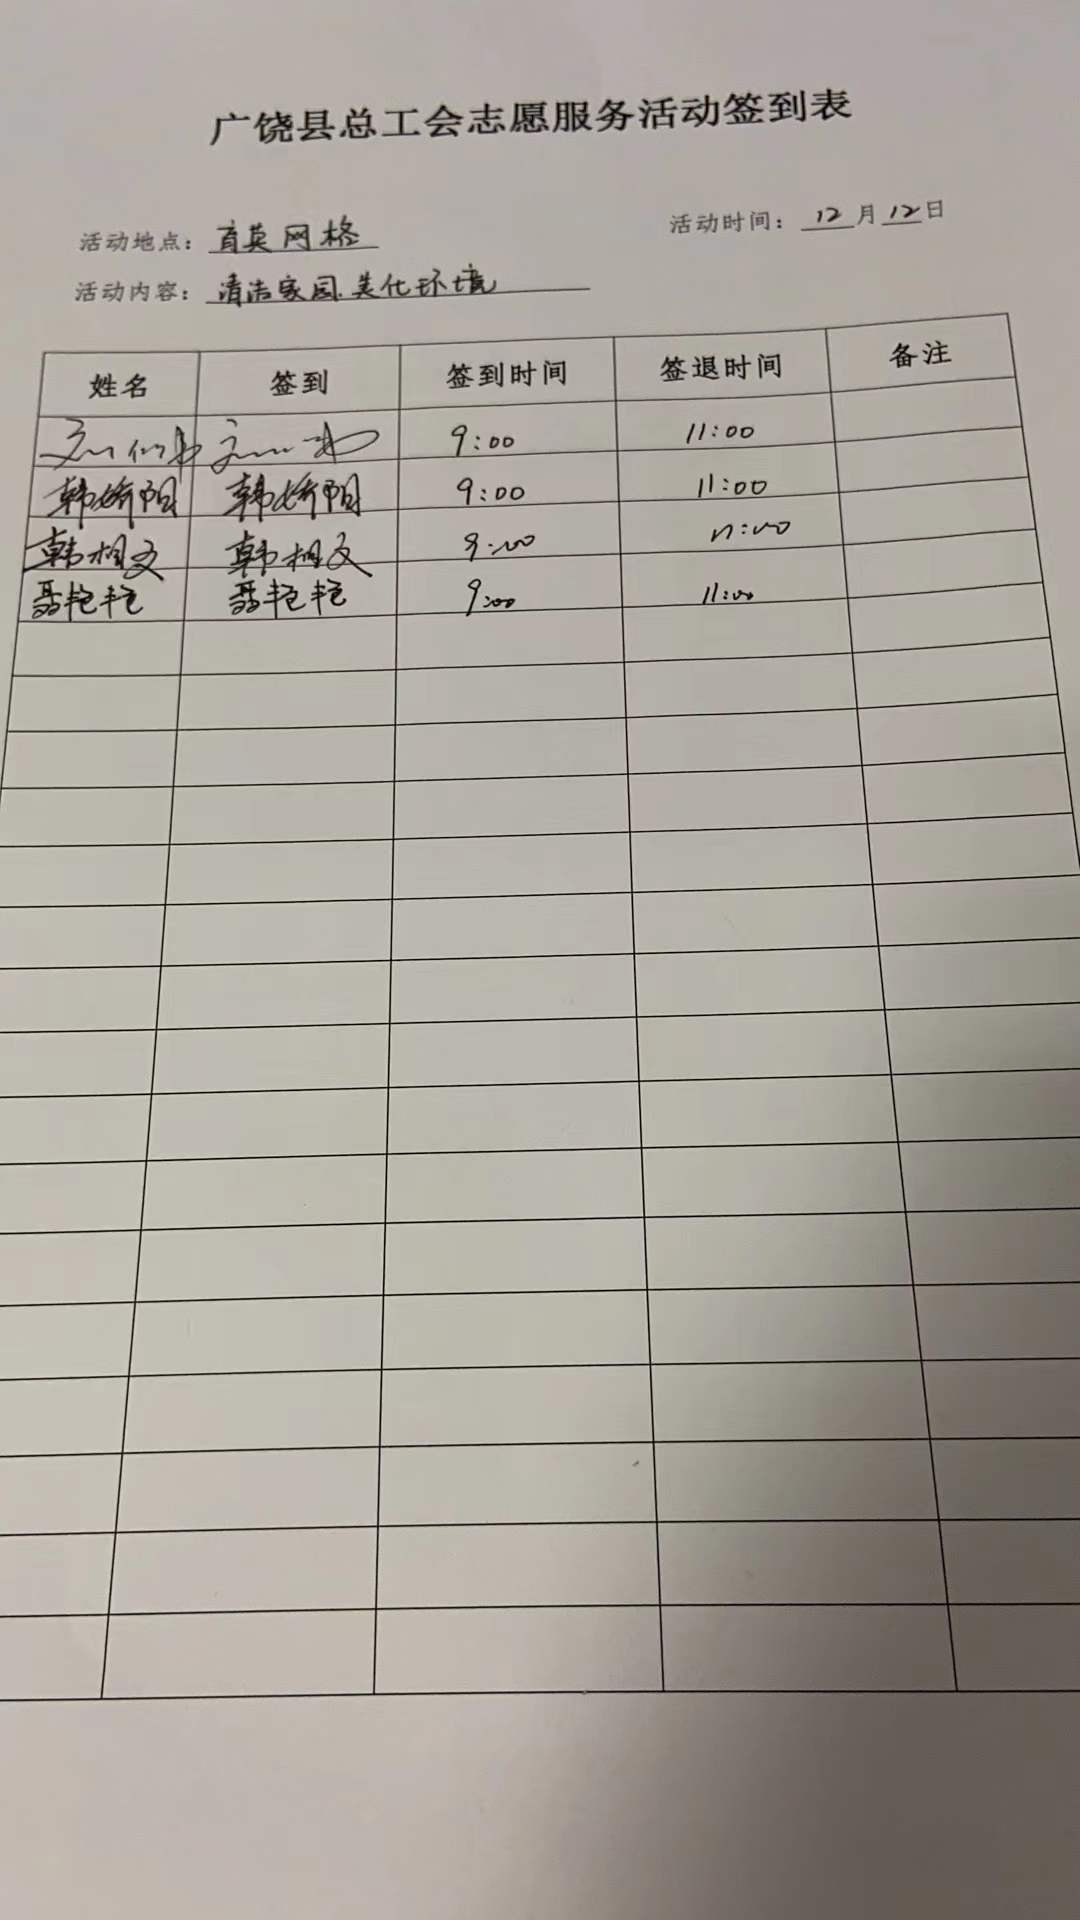 广饶县总工会志愿服务活动签到表
活动地点：育英网格 活动时间：12月12日
活动内容：清洁家园.美化环境
姓名 签到 签到时间 签退时间 备注
9:00 11:00
韩娇阳 韩娇阳 9:00 11:00
韩相文 韩相文 9:00 11:00
聂艳艳 聂艳艳 9:00 11:00